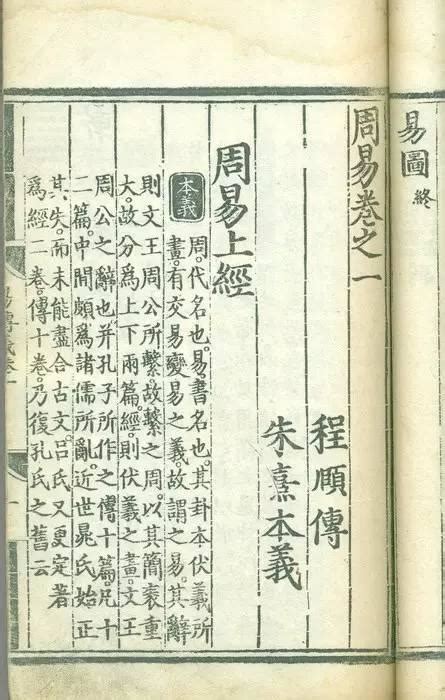 易圖 終
周易卷之一
程頤傳
朱熹本義
周易上經
本義
周。代名也。易。書名也。其卦本伏羲所
畫。有交易變易之義。故謂之易。其辭
則文王周公所繫。故繫之周。以其簡袠重
大。故分爲上下兩篇。經。則伏羲之畫。文王
周公之辭也。并孔子所作之傳十篇。凡十
二篇。中間頗爲諸儒所亂。近世晁氏始正
其失。而未能盡合古文。呂氏又更定著
爲經二卷。傳十卷。乃復孔氏之舊云